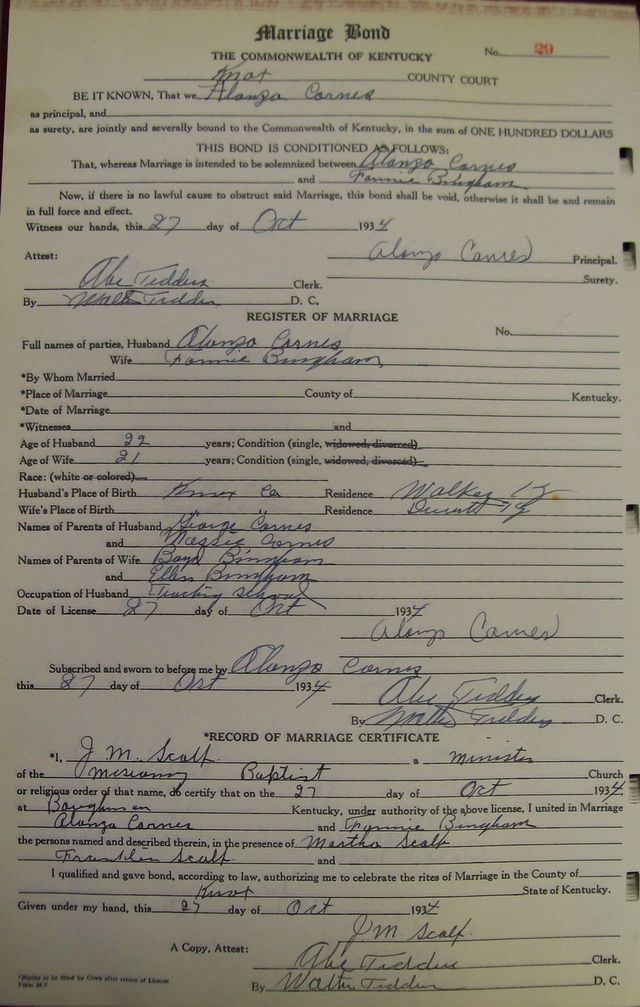 Marriage Bond
THE COMMONWEALTH OF KENTUCKY No. 29
Knox COUNTY COURT
BE IT KNOWN, That we Alonzo Carnes
as principal, and
as surety, are jointly and severally bound to the Commonwealth of Kentucky, in the sum of ONE HUNDRED DOLLARS
THIS BOND IS CONDITIONED AS FOLLOWS:
That, whereas Marriage is intended to be solemnized between Alonzo Carnes
and Fannie Bingham
Now, if there is no lawful cause to obstruct said Marriage, this bond shall be void, otherwise it shall be and remain
in full force and effect.
Witness our hands, this 27 day of Oct 1934
Alonzo Carnes Principal.
Attest:
Surety.
Abe Tedders Clerk.
By Walter Tedder D. C.
REGISTER OF MARRIAGE
No.
Full names of parties, Husband Alonzo Carnes
Wife Fannie Bingham
*By Whom Married
*Place of Marriage County of Kentucky.
*Date of Marriage
*Witnesses and
Age of Husband 22 years; Condition (single, widowed, divorced)
Age of Wife 21 years; Condition (single, widowed, divorced)
Race: (white or colored)
Husband's Place of Birth Knox Co Residence Walker Ky
Wife's Place of Birth " " Residence Dewitt Ky
Names of Parents of Husband George Carnes
and Massie Carnes
Names of Parents of Wife Boyd Bingham
and Ellen Bingham
Occupation of Husband Teaching school
Date of License 27 day of Oct 1934
Alonzo Carnes
Subscribed and sworn to before me by Alonzo Carnes
this 27 day of Oct 1934
Abe Tedders Clerk.
By Walter Tedders D. C.
*RECORD OF MARRIAGE CERTIFICATE
*I, J. M. Scalf a minister
of the Missionary Baptist Church
or religious order of that name, do certify that on the 27 day of Oct 1934
at Baughman Kentucky, under authority of the above license, I united in Marriage
Alonzo Carnes and Fannie Bingham
the persons named and described therein, in the presence of Martha Scalf
Franklin Scalf and
I qualified and gave bond, according to law, authorizing me to celebrate the rites of Marriage in the County of
Knox State of Kentucky.
Given under my hand, this 27 day of Oct 1934
J. M. Scalf.
A Copy, Attest: Abe Tedders Clerk.
*Blanks to be filled by Clerk after record of License
By Walter Tedders D. C.